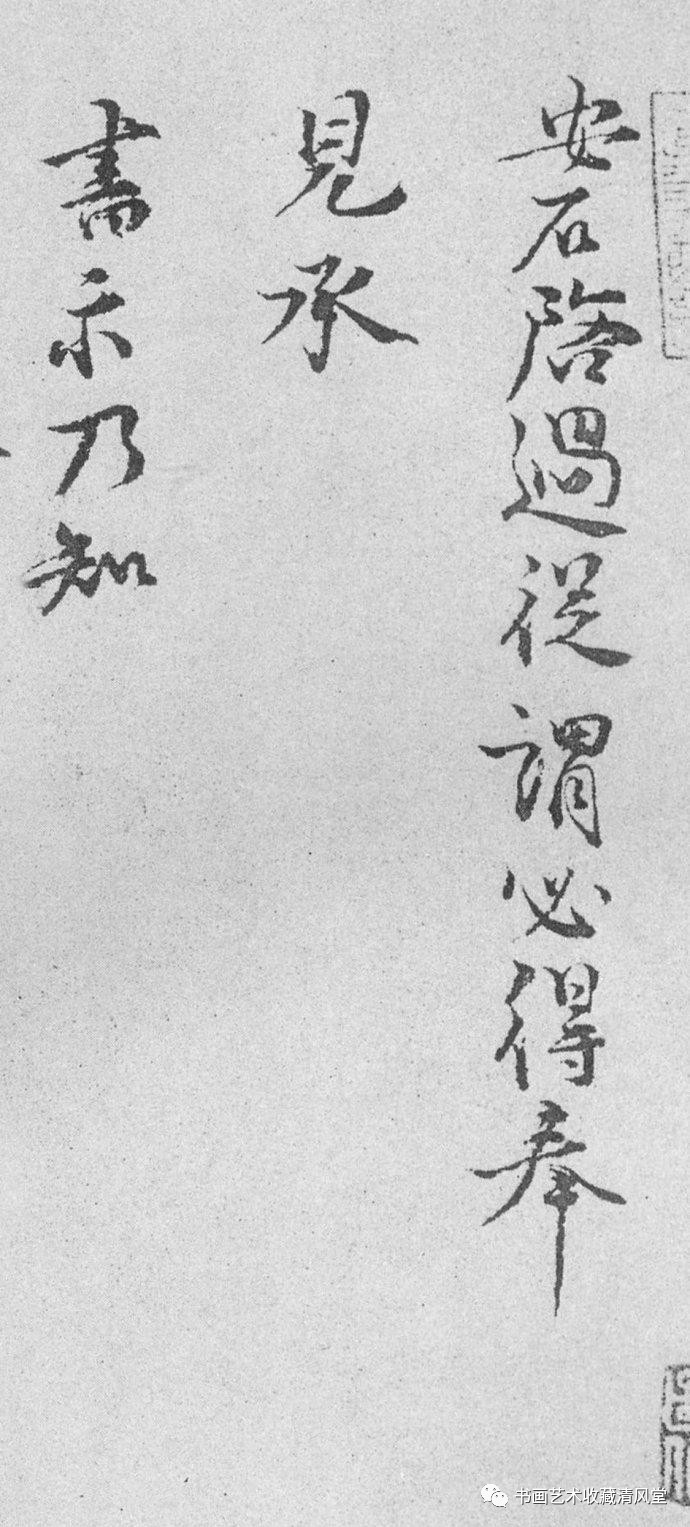 安石啓過從謂必得奉
見承
書示乃知
书画艺术收藏清风堂